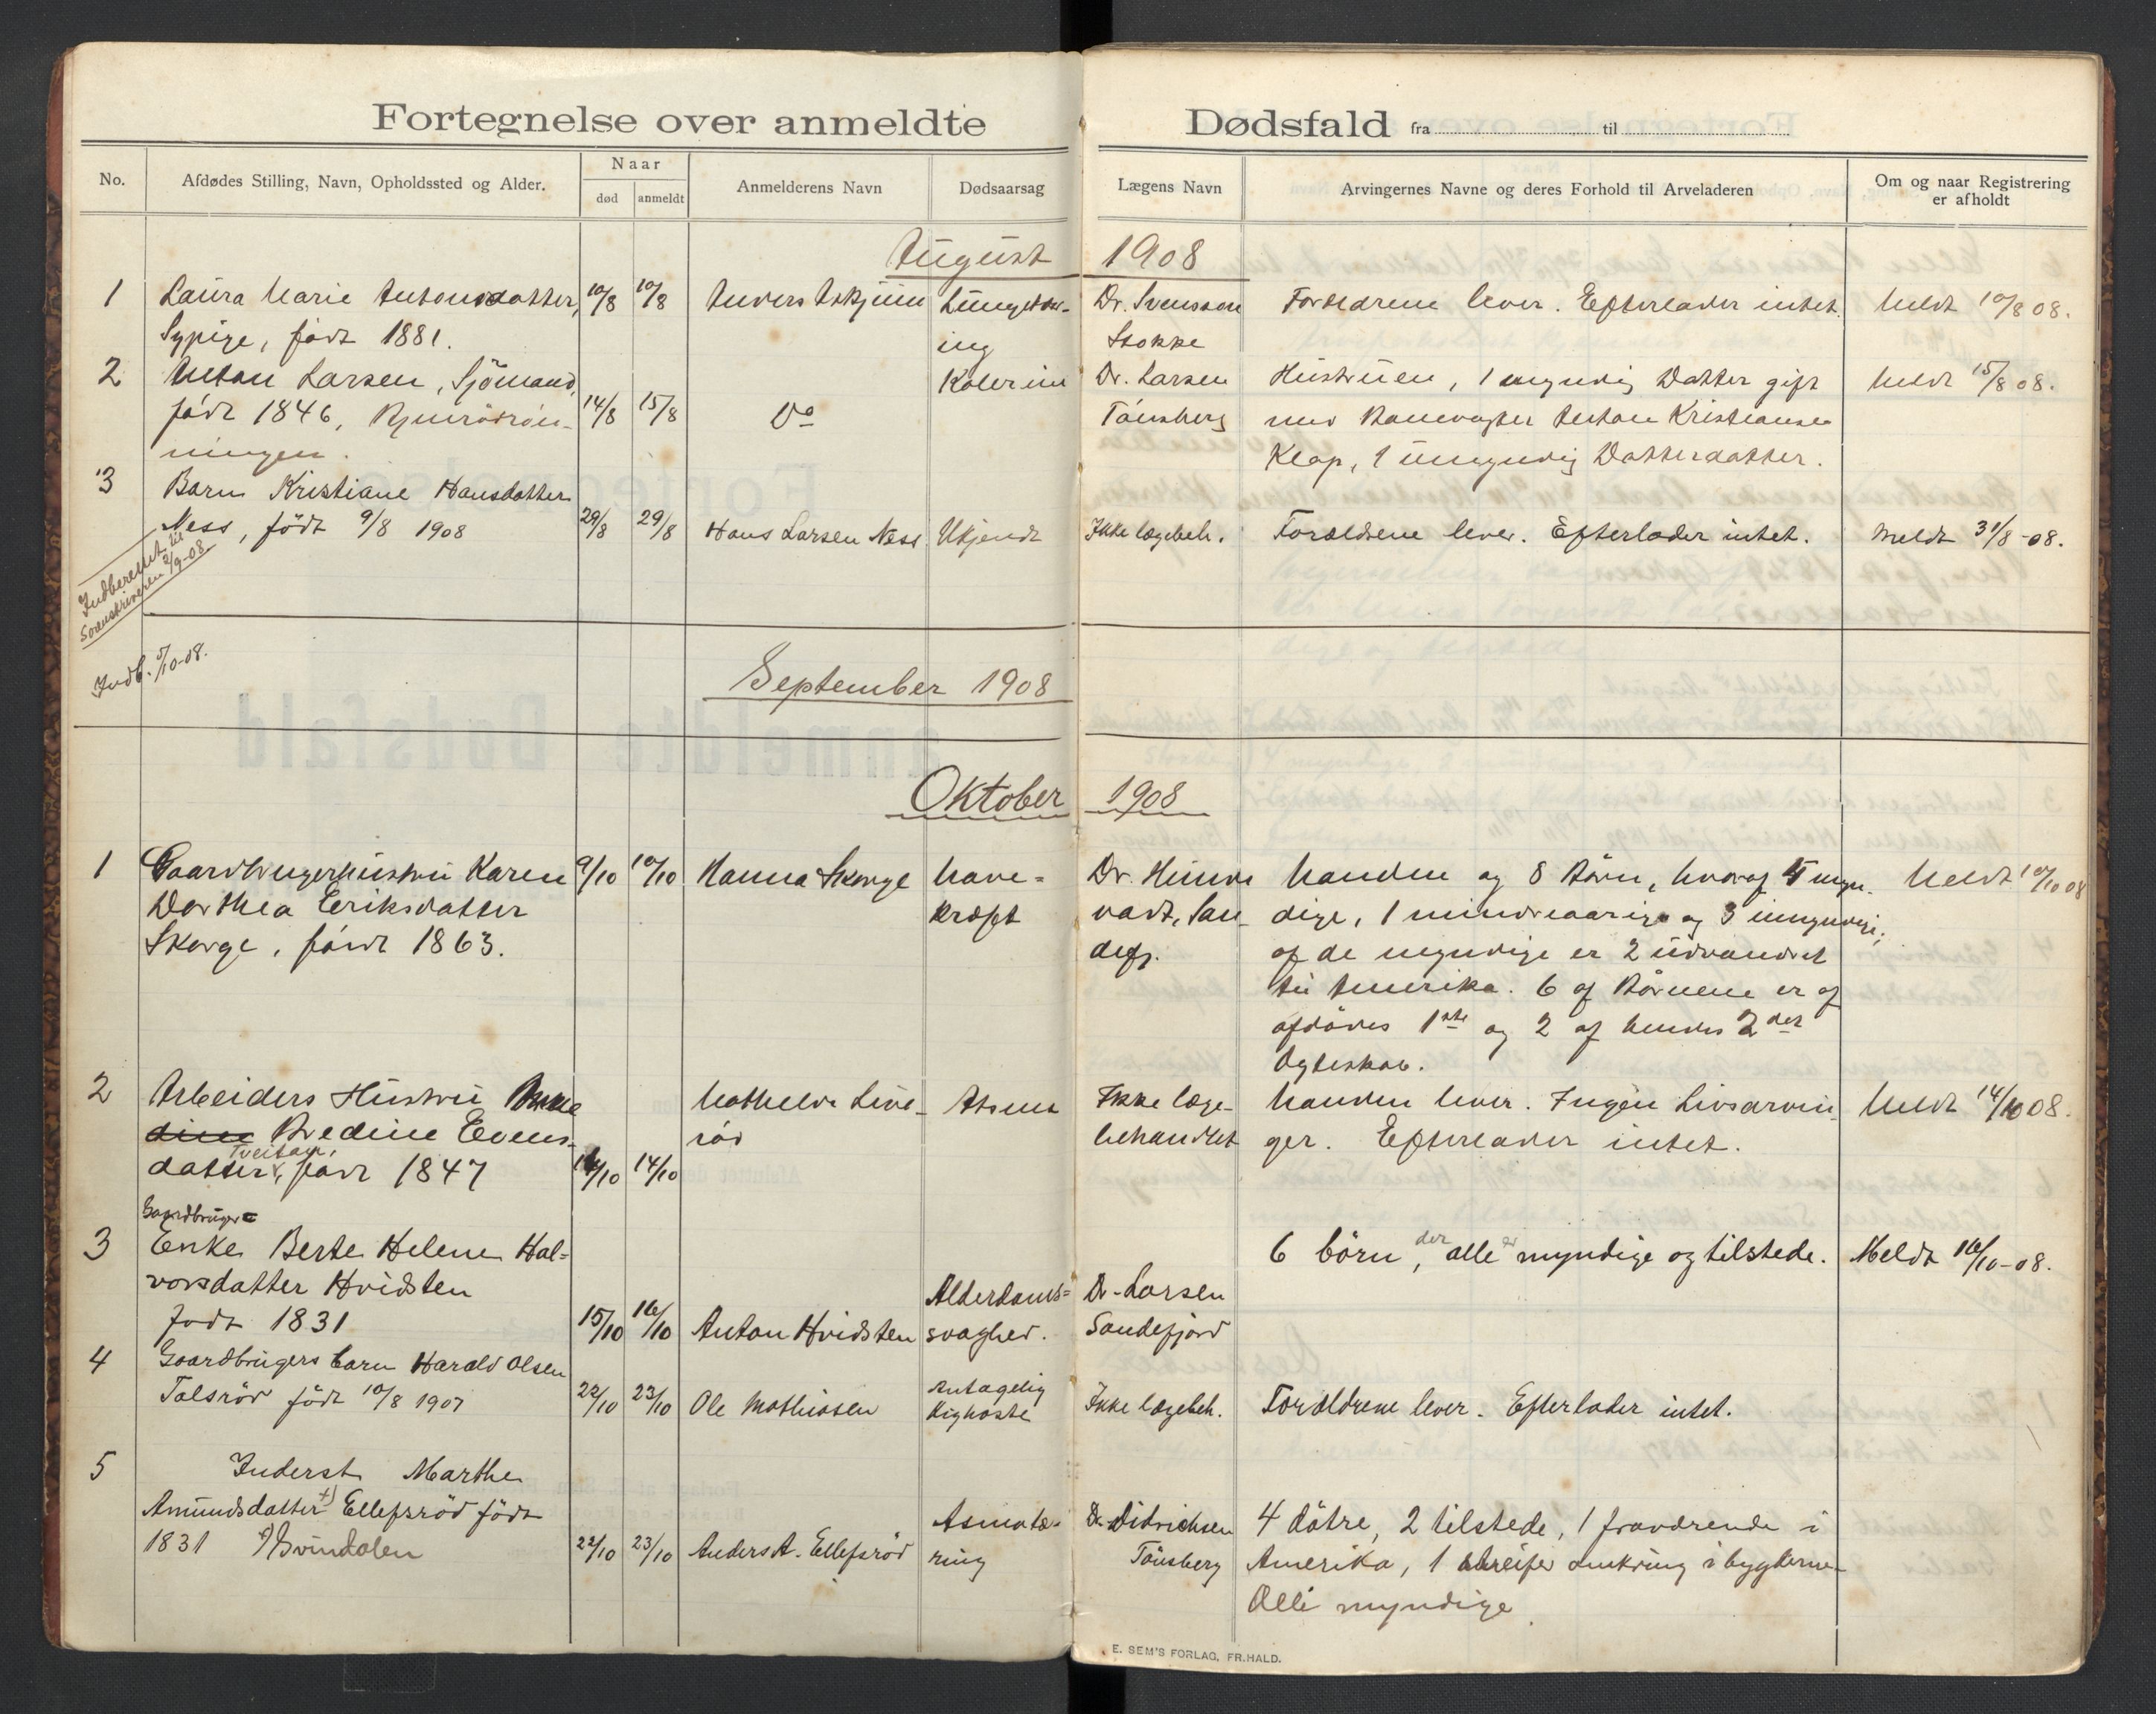 Fortegnelse over anmeldte Dødsfald fra til
No.
Afdødes Stilling, Navn, Opholdssted og Alder.
Naar
død anmeldt
Anmelderens Navn
Dødsaarsag
Lægens Navn
Arvingernes Navne og deres Forhold til Arveladeren
Om og naar Registrering
er afholdt
August 1908
1 Laura Marie Antonsdatter, 10/8 10/8 Anders Askjum Lungetær- Dr. Svensson Forældrene lever. Efterlader intet. Meldt 10/8 08.
Sypige, født 1881. ing Stokke
2 Anton Larsen, Sjömand, Kolerine Dr. Larsen Hustruen, 1 myndig Datter gift Meldt 15/8 08.
født 1846, 14/8 15/8 Do Tönsberg med Banevogter Anton Kristiansen
ningen. Klop, 1 umyndig Datterdatter.
3 Barn Kristiane Hansdatter
Ness, födt 9/8 1908 29/8 29/8 Hans Larsen Ness Ukjendt Ikke lægebeh. Forældrene lever. Efterlader intet. Meldt 31/8-08.
Indberettet til
Sorenskriveren 2/9-08
Indb. 5/10-08.
September 1908
Oktober 1908
1 Gaardbrugerhustru Karen 9/10 10/10 Hanna Skorge Mave- Dr. Manden og 8 Börn, hvoraf 4 myn- Meldt 10/10 08
Dorthea Eriksdatter kræft San- dige, 1 mindreaarige og 3 umyndige;
Skorge, födt 1863. defj. af de myndige er 2 udvandret
til Amerika. 6 af Börnene er af
afdödes 1ste og 2 af hendes 2det
Ægteskab.
2 Arbeiders Hustru Mathilde Asma Ikke læge- Manden lever. Ingen Livsarvin- Meldt 14/10 08.
Bredine Evens- röd behandlet ger. Efterlader intet.
Tveitan,
datter, födt 1847 14/10 14/10
Gaardbruger=
3 Enke Berte Helene Hal= 6 börn, der alle er myndige og tilstede. Meldt 16/10-08.
vorsdatter Hvidsten Alderdoms= Dr. Larsen
Født 1831 15/10 16/10 Anton Hvidsten svaghed. Sandefjord
4 Gaardbrugers barn Harald Olsen
Tolsröd födt 10/8 1907 22/10 23/10 Ole Mathiasen Antagelig Ikke lægebeh. Forældrene lever. Efterlader intet.
Kighoste
5 Inderst Marthe
Amundsdatter +) Ellefsröd födt Asmatæ- Dr. Didrichsen 4 dötre, 2 tilstede, 1 fraværende i
1831 +) Svindalen 22/10 23/10 Anders A. Ellefsröd ring Tönsberg Amerika, 1 streifer omkring i bygderne.
Alle myndige
E. SEM'S FORLAG, FR.HALD.